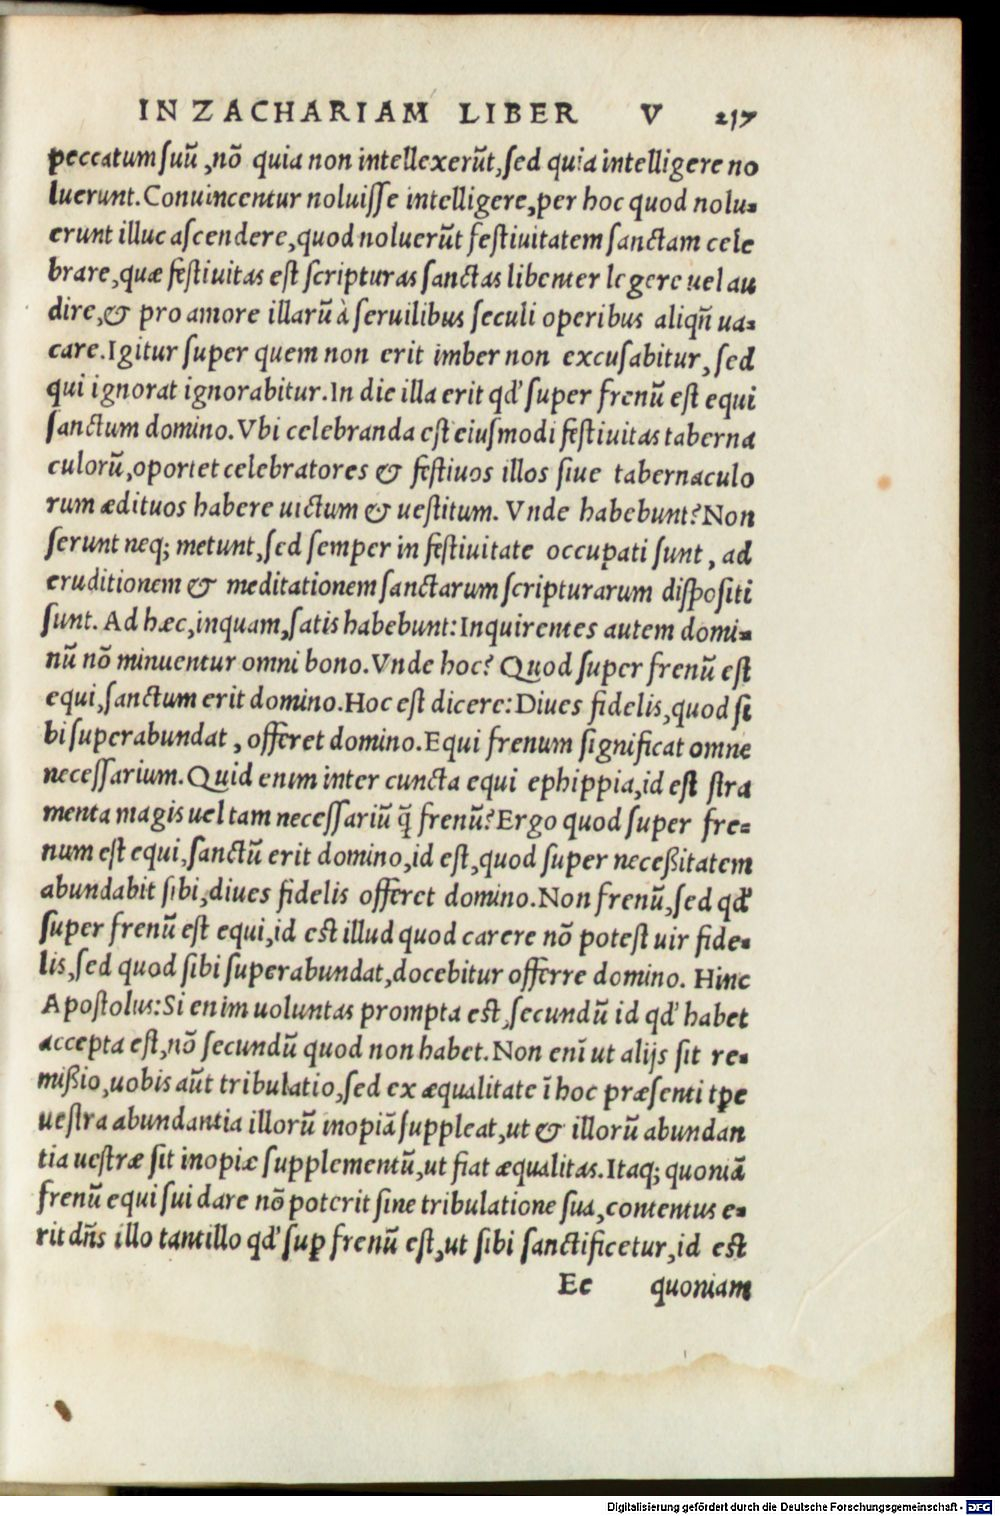 IN ZACHARIAM LIBER V 217
peccatum suũ, nõ quia non intellexerũt, sed quia intelligere no
luerunt. Conuincentur noluisse intelligere, per hoc quod nolu-
erunt illuc ascendere, quod noluerũt festiuitatem sanctam cele
brare, quæ festiuitas est scripturas sanctas libenter legere uel au
dire, & pro amore illarũ à seruilibus seculi operibus aliqñ ua-
care. Igitur super quem non erit imber non excusabitur, sed
qui ignorat ignorabitur. In die illa erit qđ super frenũ est equi
sanctum domino. Vbi celebranda est eiusmodi festiuitas taberna
culorũ, oportet celebratores & festiuos illos siue tabernaculo
rum ædituos habere uictum & uestitum. Vnde habebunt? Non
serunt neq; metunt, sed semper in festiuitate occupati sunt, ad
eruditionem & meditationem sanctarum scripturarum dispositi
sunt. Ad hæc, inquam, satis habebunt: Inquirentes autem domi-
nũ nõ minuentur omni bono. Vnde hoc? Quod super frenũ est
equi, sanctum erit domino. Hoc est dicere: Diues fidelis, quod si
bi superabundat, offeret domino. Equi frenum significat omne
necessarium. Quid enim inter cuncta equi ephippia, id est stra
menta magis uel tam necessariũ q̃ frenũ? Ergo quod super fre-
num est equi, sanctũ erit domino, id est, quod super neceßitatem
abundabit sibi, diues fidelis offeret domino. Non frenũ, sed qđ
super frenũ est equi, id est illud quod carere nõ potest uir fide-
lis, sed quod sibi superabundat, docebitur offerre domino. Hinc
Apostolus: Si enim uoluntas prompta est, secundũ id qđ habet
accepta est, nõ secundũ quod non habet. Non enĩ ut alijs sit re-
mißio, uobis aũt tribulatio, sed ex æqualitate ĩ hoc præsenti tp̃e
uestra abundantia illorũ inopiã suppleat, ut & illorũ abundan
tia uestræ sit inopiæ supplementũ, ut fiat æqualitas. Itaq; quoniã
frenũ equi sui dare nõ poterit sine tribulatione sua, contentus e-
rit dñs illo tantillo qđ suꝑ frenũ est, ut sibi sanctificetur, id est
Ee quoniam
Digitalisierung gefördert durch die Deutsche Forschungsgemeinschaft - DFG